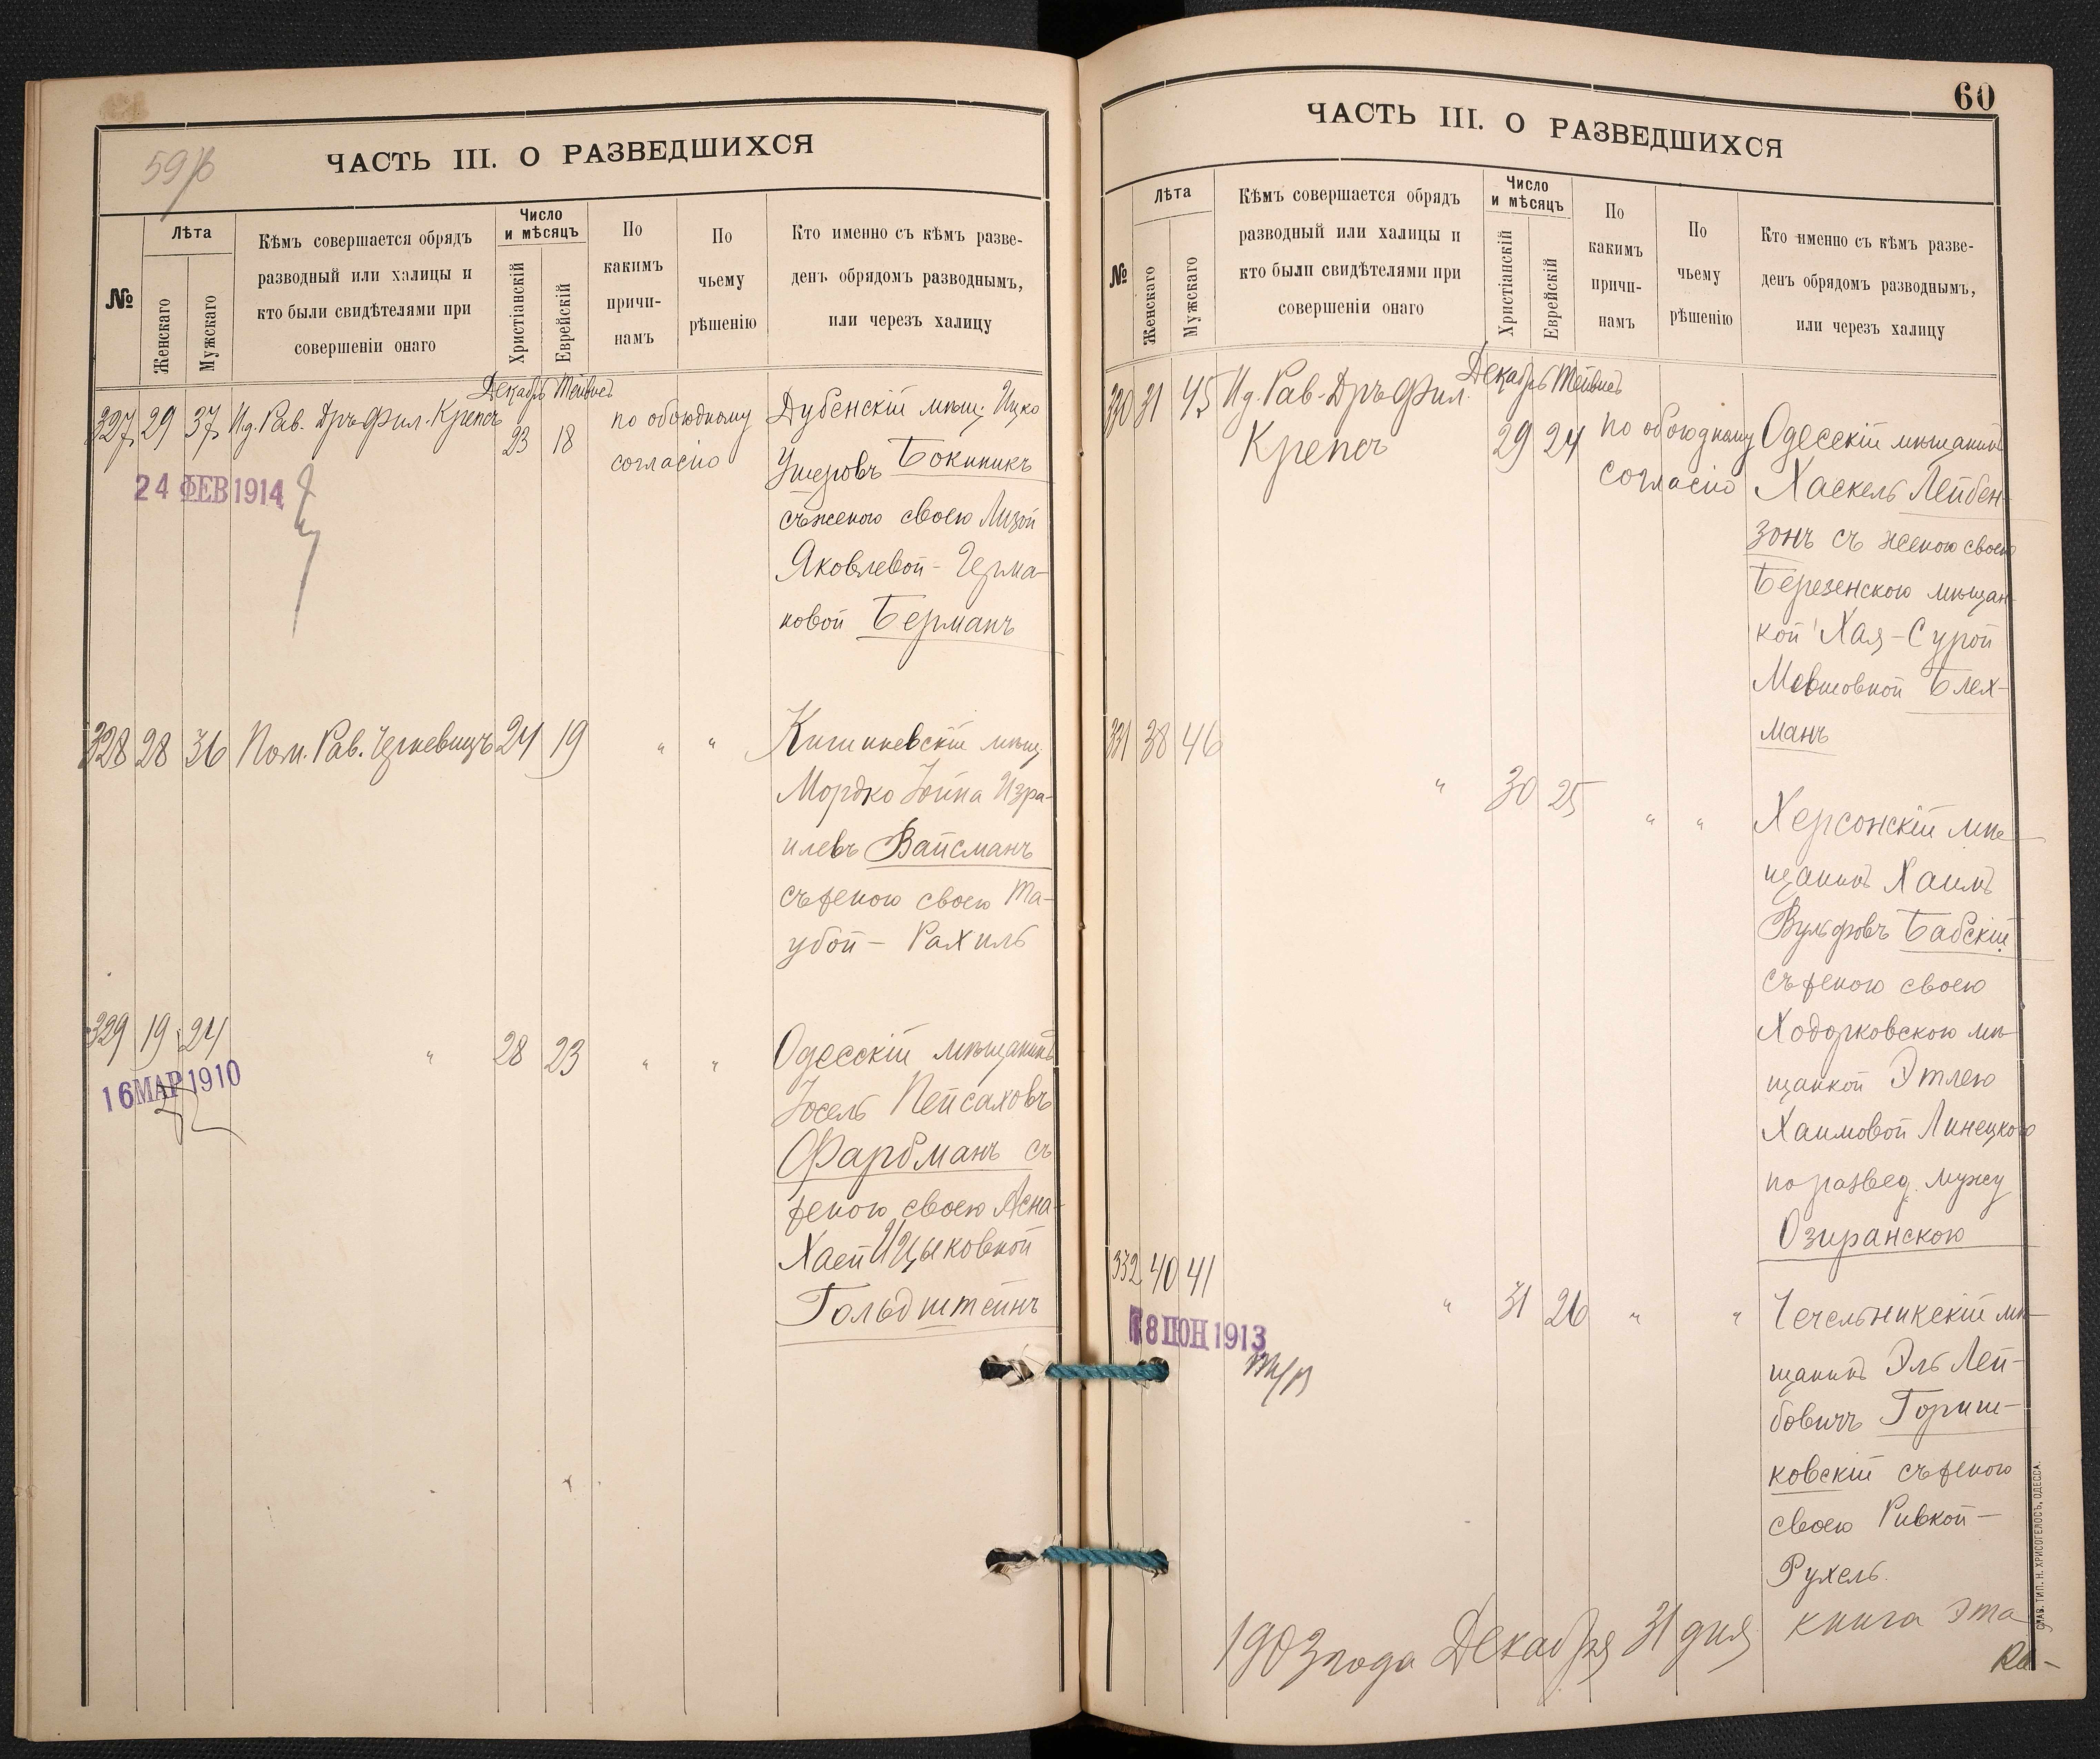 59/б
ЧАСТЬ III. О РАЗВЕДШИХСЯ
№
Лѣта
Женскаго
Мужскаго
Кѣмъ совершается обрядъ
разводный или халицы и
кто были свидѣтелями при
совершеніи онаго
Число
и мѣсяцъ
Христіанскій
Еврейскій
По
какимъ
причи-
намъ
По
чьему
рѣшенію
Кто именно съ кѣмъ разве-
денъ обрядомъ разводнымъ,
или черезъ халицу
Декабрь Тейвес
327 29 37 Ид. Рав. Дръ Фил. Крепсъ 23 18 по обоюдному
согласію
Дубенскій мѣщ. Ицко
Ушеровъ Бокиникъ
съ женою своею Лизой
Яковлевой-Герма-
новой Берманъ
24 ФЕВ 1914
328 28 36 Пом. Рав. Черневицъ 24 19 " "
Кишиневскій мѣщ.
Мордко Іойна Изра-
илевъ Вайсманъ
съ женою своею Та-
убой - Рахиль
329 19 24 " 28 23 " "
Одесскій мѣщанинъ
Іосель Пейсаховъ
Фарбманъ съ
женою своею Асна-
Хаей Ицыковной
Гольдштейнъ
16 МАР 1910
60
ЧАСТЬ III. О РАЗВЕДШИХСЯ
№
Лѣта
Женскаго
Мужскаго
Кѣмъ совершается обрядъ
разводный или халицы и
кто были свидѣтелями при
совершеніи онаго
Число
и мѣсяцъ
Христіанскій
Еврейскій
По
какимъ
причи-
намъ
По
чьему
рѣшенію
Кто именно съ кѣмъ разве-
денъ обрядомъ разводнымъ,
или черезъ халицу
Декабрь Тейвес
330 31 45 Ид. Рав. Дръ Фил.
Крепсъ 29 24 по обоюдному
согласію
Одесскій мѣщанинъ
Хаскель Лейбен-
зонъ съ женою своею
Березенскою мѣщан-
кой Хая-Сурой
Мовшовной Блех-
манъ
331 38 46 " 30 25 " "
Херсонскій мѣ-
щанинъ Хаимъ
Вульфовъ Бабскій
съ женою своею
Ходорковскою мѣ-
щанкой Этлею
Хаимовой Линецкою
по развед. мужу
Озиранскою
332 40 41 " 31 26 " "
Чечельникскій мѣ-
щанинъ Эль Лей-
бовичъ Гориш-
ковскій съ женою
своею Ривкой-
Рухель.
18 ІЮН 1913
1903 года Декабря 31 дня книга эта
за-
ТИП. Н. ХРИСОГЕЛОСЪ, ОДЕССА.